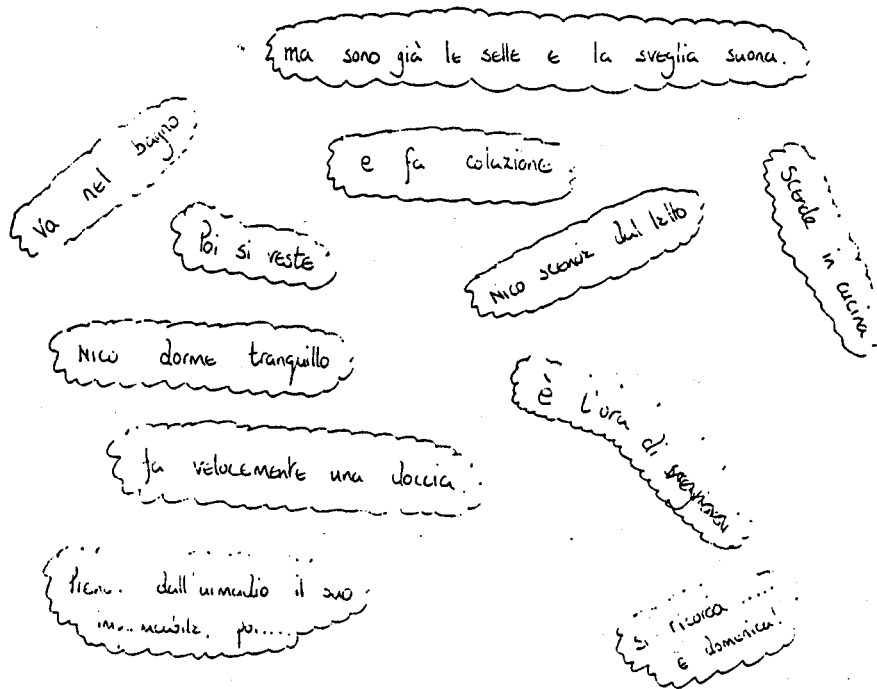 ma sono già le sette e la sveglia suona.
va nel bagno
e fa colazione
Scende in cucina.
Poi si veste
Nico scende dal letto
Nico dorme tranquillo
è l'ora di
fa velocemente una doccia.
dall'armadio il suo
poi.....
si ricorca .....
è domenica!